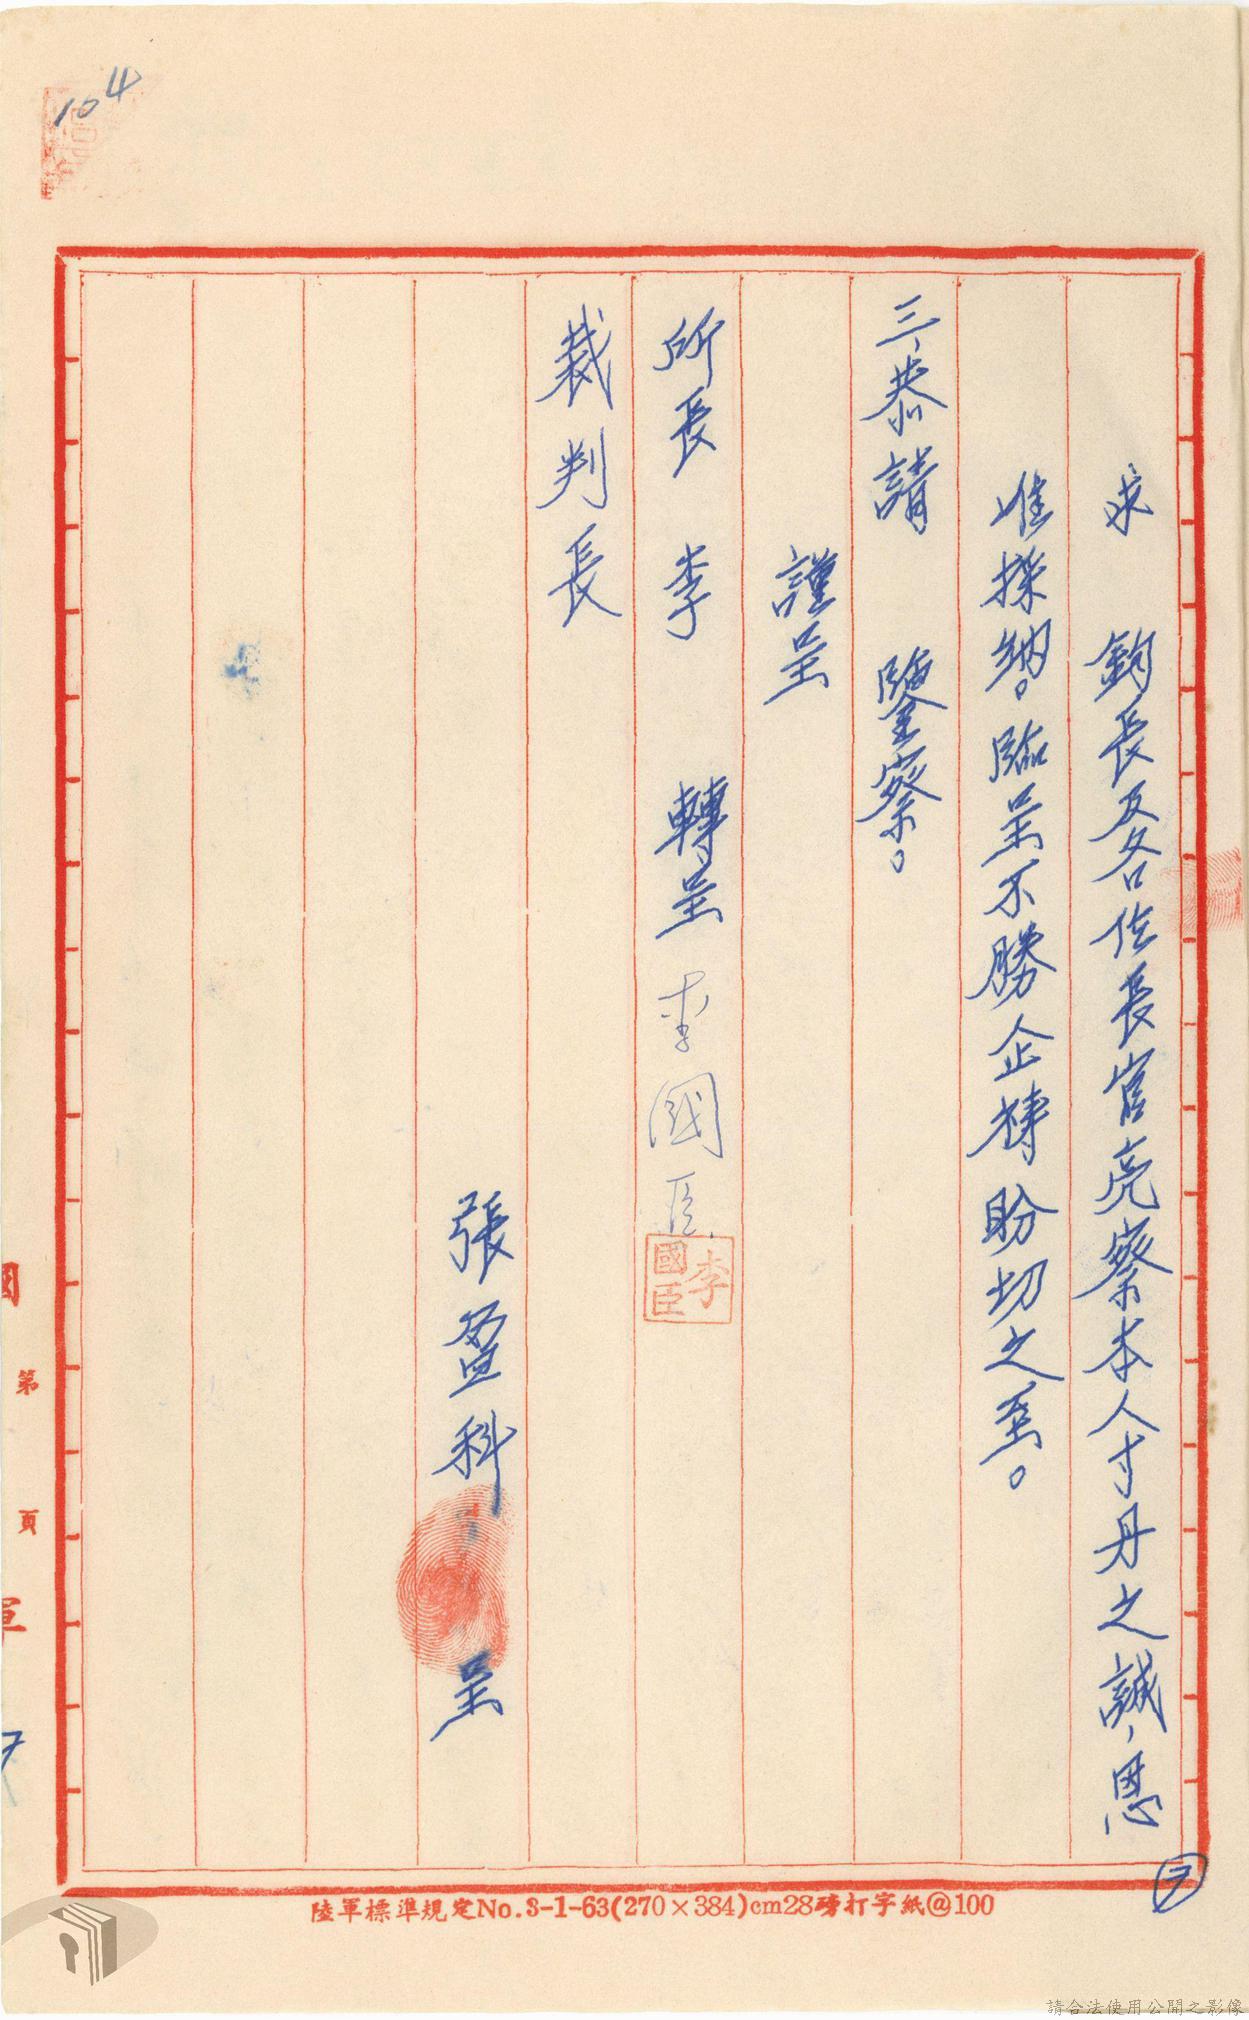 104
求 鈞長及各位長官亮察本人寸丹之誠，恩
准採納。臨呈不勝企禱盼切之至。
三、恭請 鑒察。
謹呈
所長 李 轉呈 李國臣
李國臣
裁判長
張盈科 呈
第 頁
陸軍標準規定No.3-1-63(270×384)cm28磅打字紙@100
請合法使用公開之影像